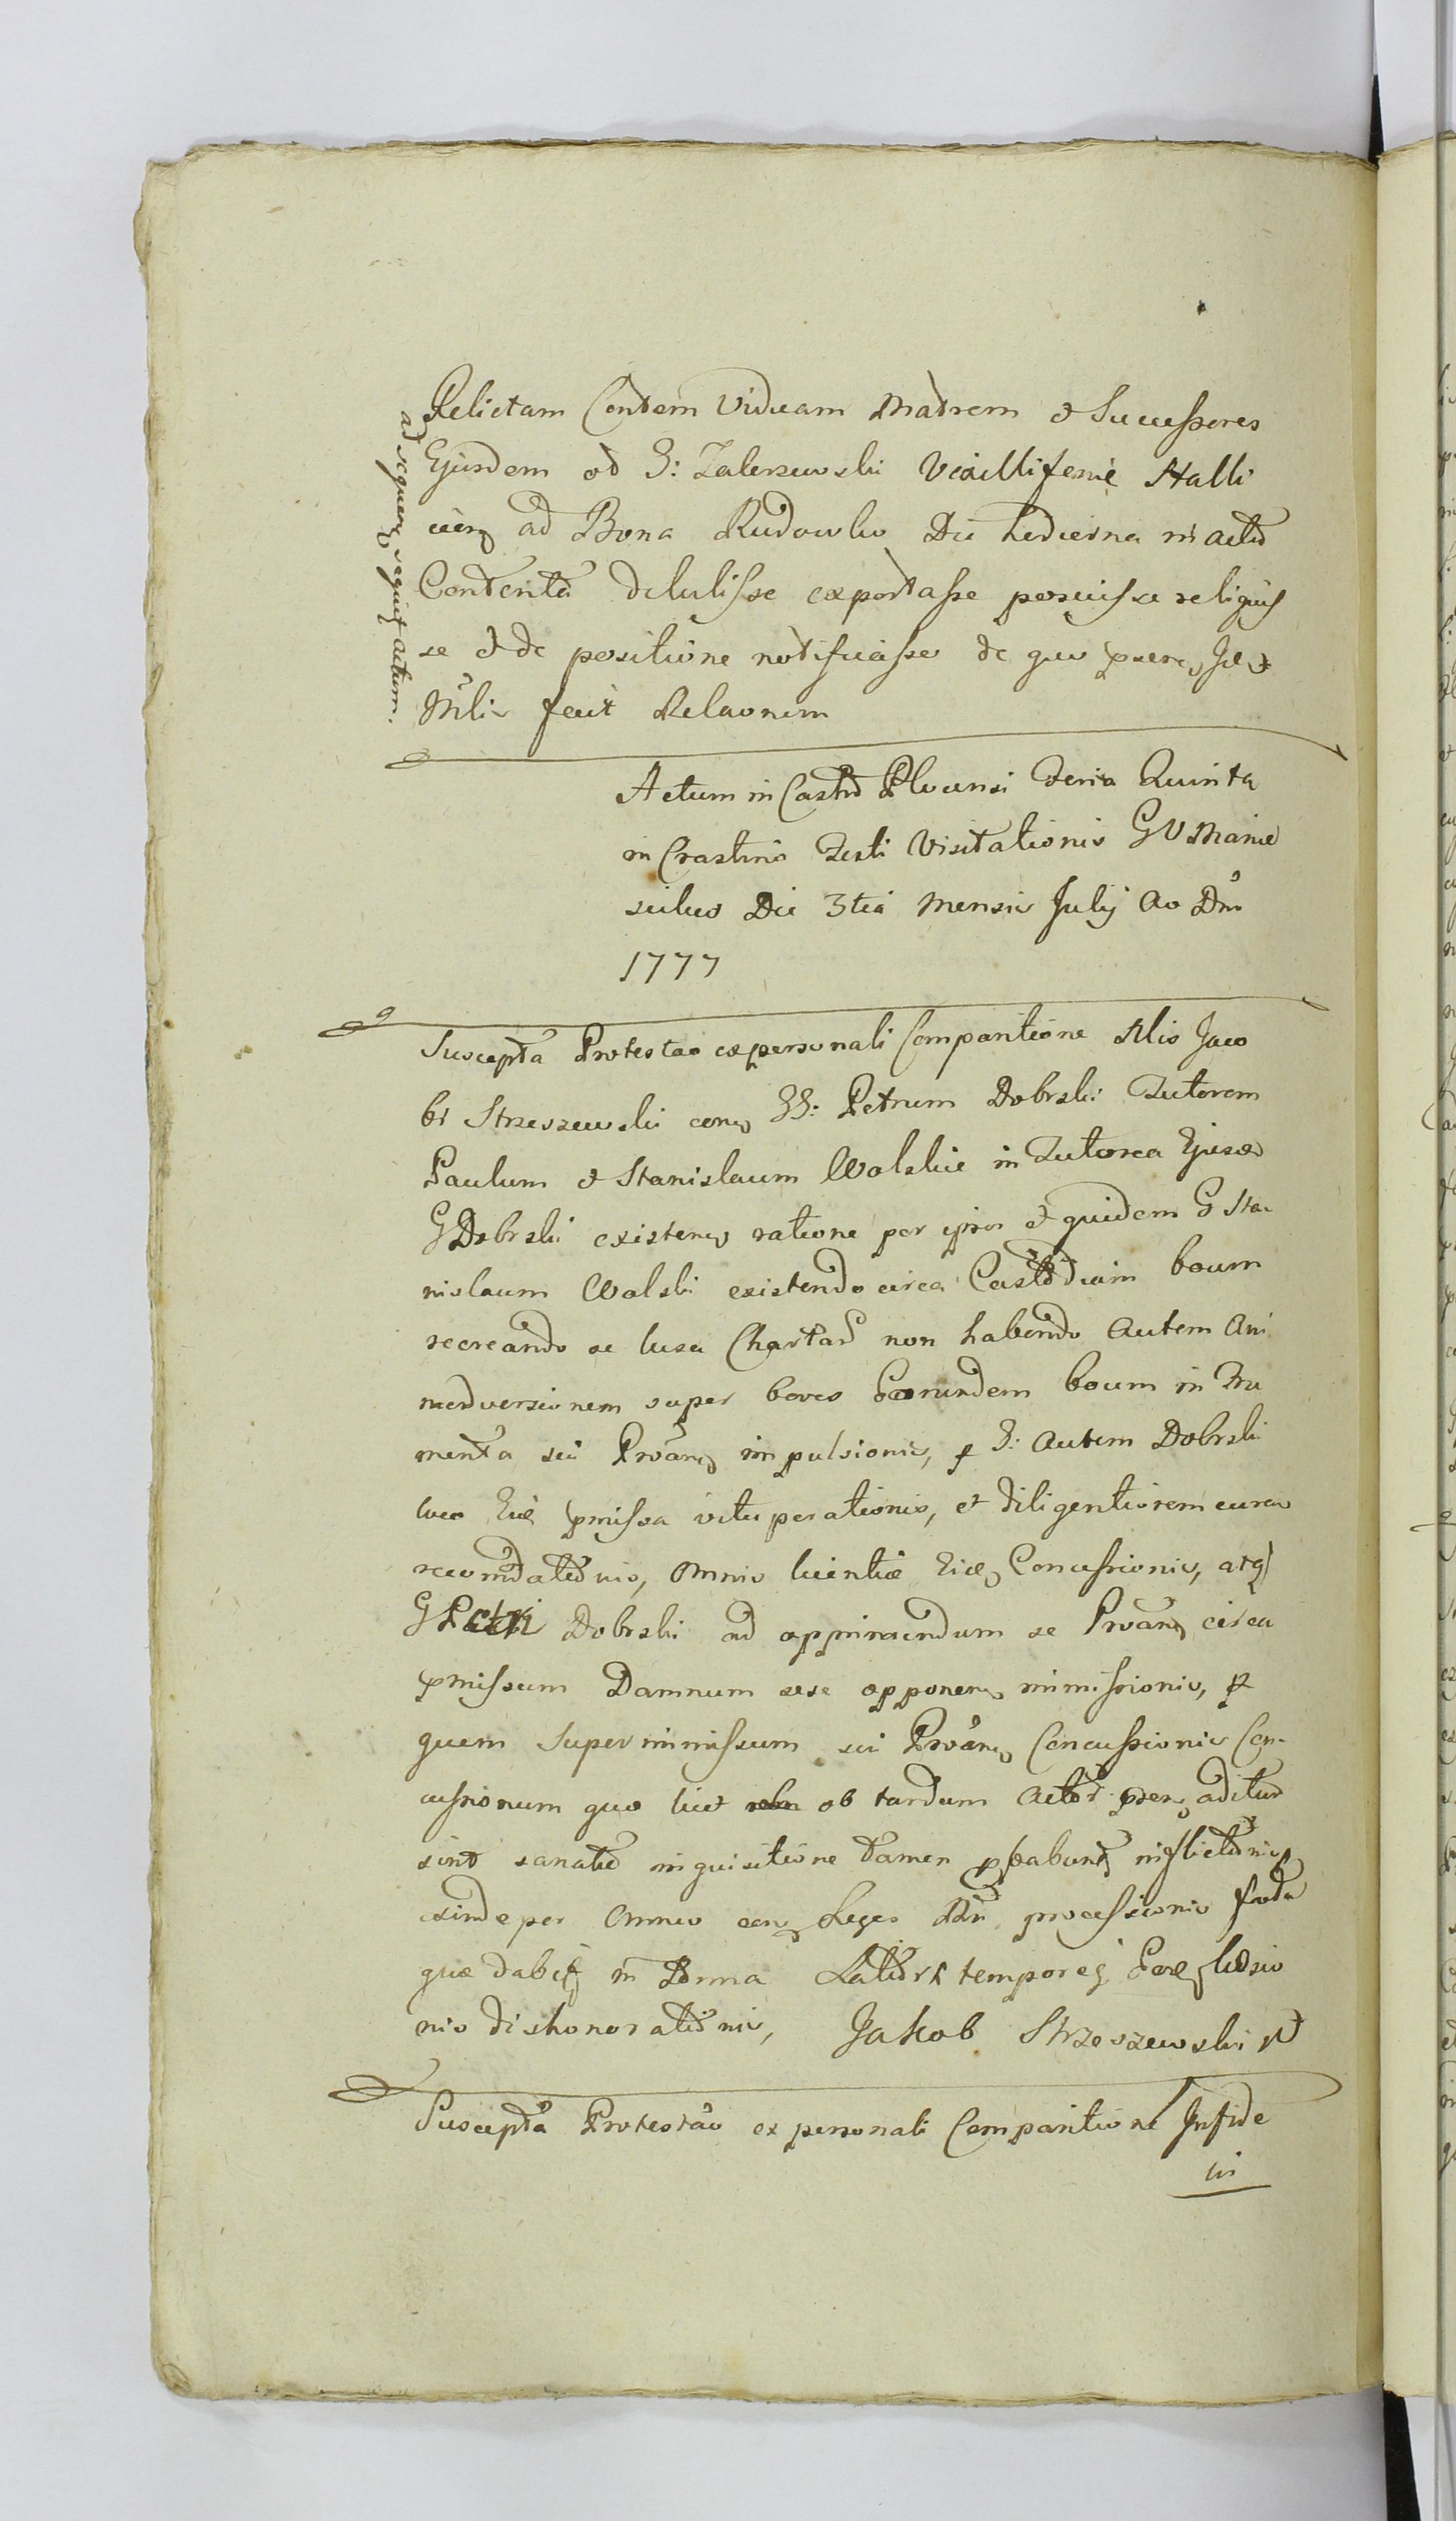 Relictam Contem Viduam Matrem et Successores
Ejusdem ad G: Zalerzewski Vexilliferie Halli
cien ad Bona Rudowko Die hodierna in actu
Contenta detulisse exportasse posuisse reliquis
se et de positione notificasse de quo praens Ide
Mlis fecit Relaonem
ad sequen sequit actum.
Actum in Castro Plocensi Feria Quinta
in Crastino Festi Visitationis GV Mariae
scilicet Die 3tia Mensis Julij Ao Dni
1777
Suscepta Protestao ex personali Comparitione Nlis Jaco
bi Strzeszewski con GG: Petrum Dobrski Tutorem
Paulum et Stanislaum Wolskie in Tutorea Ejusd
G Dobrski existen ratione per ipsos et quidem G Sta
nislaum Wolski existendo circa Custodiam boum
recreando se lusu Chartar non habendo Autem Ani
madversionem super boves Eorundem boum in Fru
menta sui Proan impulsionis, p G: Autem Dobrski
loco Eie pmissa vituperationis, et diligentiorem curam
recomdationis, omnis licentiae Eiae Concussionis, atq
G Petri Dobrski ad opprimendum se Proan circa
pmissum Damnum sese opponen immissionis, p
quem Superimmissum sui Proan Concussionis Con-
cussionum quo licet ob tardum Actor praen aditum
sint sanatae inquisitione tamen pbabunt inflictionis
exinde per omnes con Leges Dni processionis
quae dabit in Termino Lationis temporeq Eore laesio
nis dishonorationis, Jakob Strzeszewski
Suscepta Protestao ex personali Comparitione Infide
lis